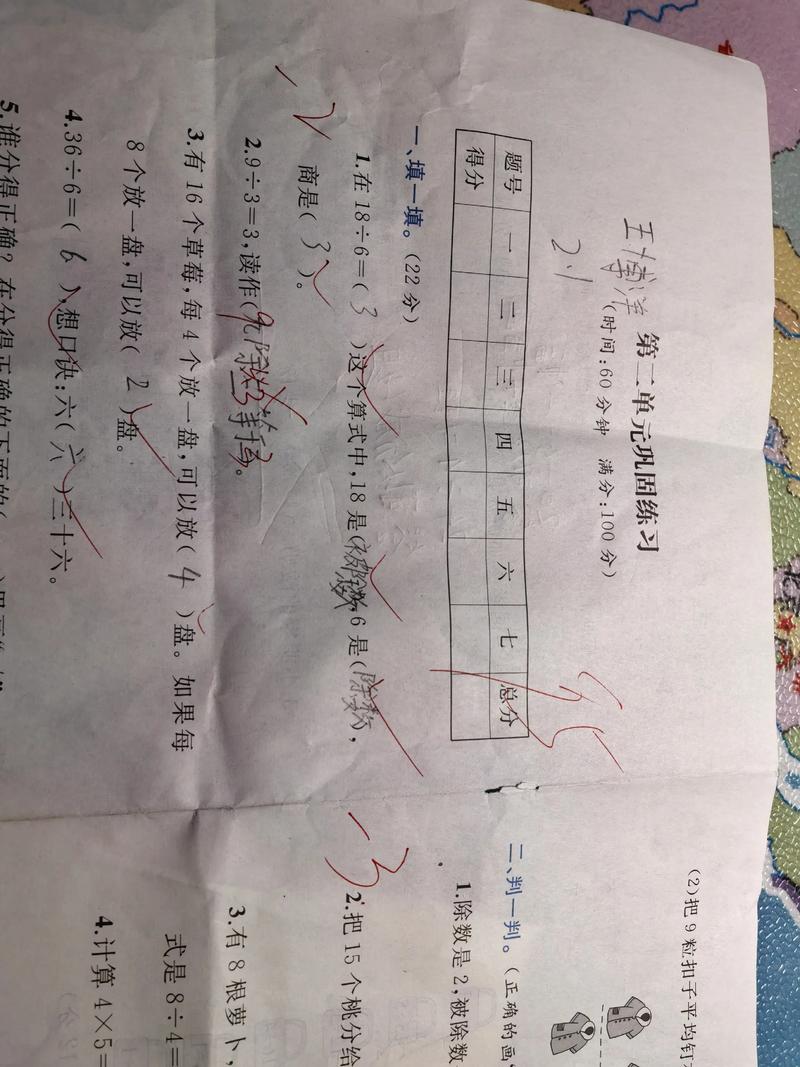 王博洋 第二单元巩固练习
2.1 (时间:60分钟 满分:100分)
题号 一 二 三 四 五 六 七 总分
得分
一、填一填。(22分)
-2
1.在18÷6=( 3 )这个算式中,18是(被除数,6是(除数,
商是( 3 )。
2.9÷3=3,读作(九除以3等于3。
3.有16个草莓,每4个放一盘,可以放( 4 )盘。如果每
8个放一盘,可以放( 2 )盘。
4.36÷6=( 6 ),想口诀:六( 六 )三十六。
5.谁分得正确?在分得正确的下面的(
(2)把9粒扣子平均钉
二、判一判。(正确的画
-3
1.除数是2,被除数
2.把15个桃分给
3.有8根萝卜,
式是8÷4=
4.计算4×5=